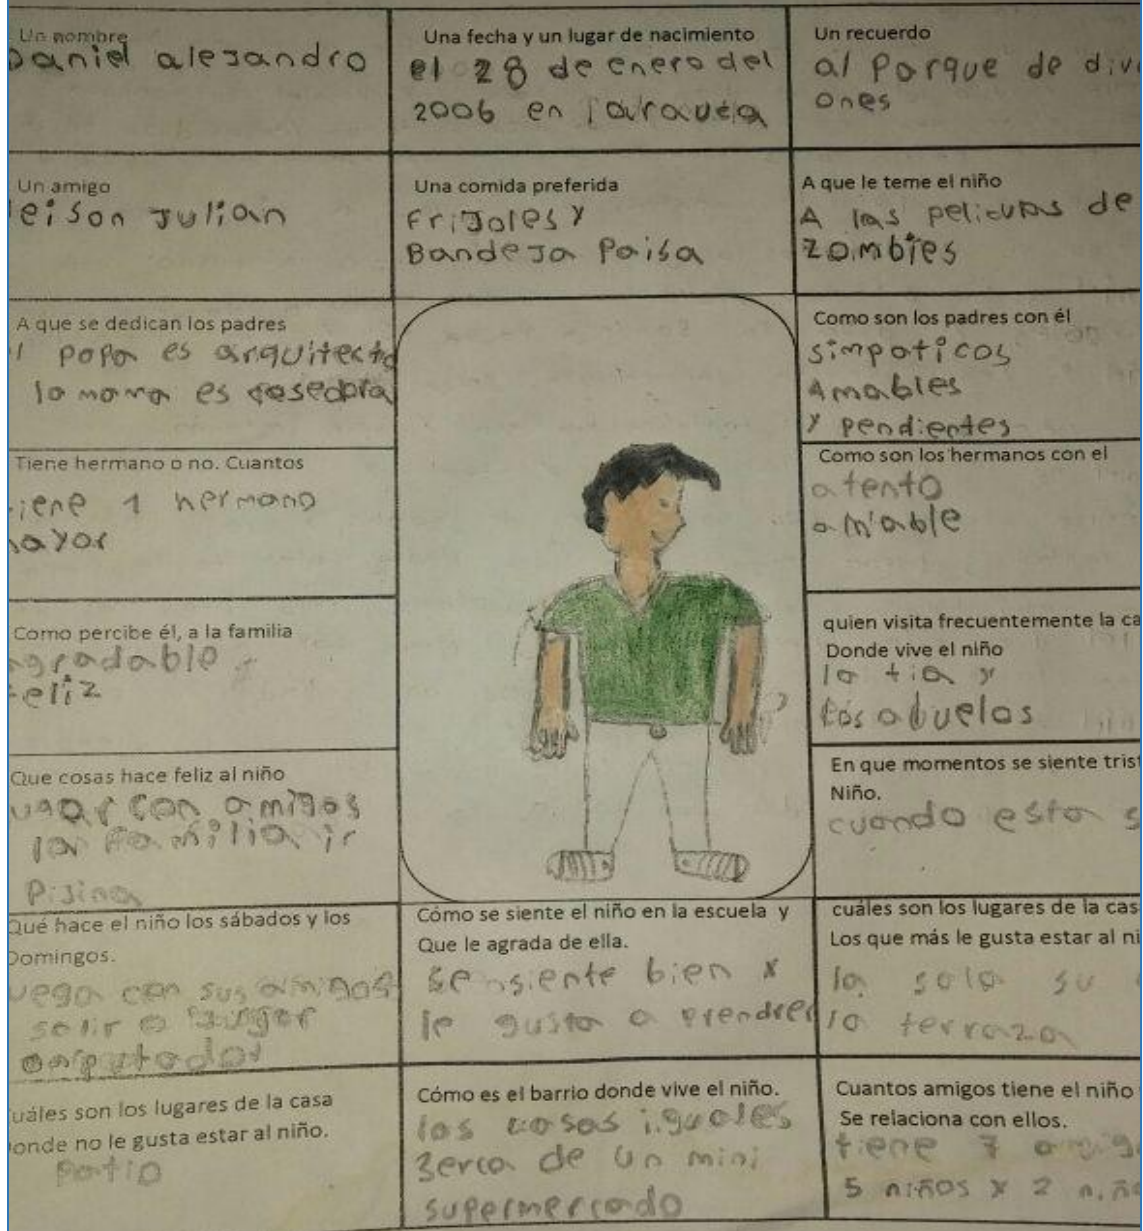 Un nombre
Daniel alejandro
Una fecha y un lugar de nacimiento
el 28 de enero del
2006 en
Un recuerdo
al Parque de div
ones
Un amigo
eison Julian
Una comida preferida
Frijoles y
Bandeja Paisa
A que le teme el niño
A las peliculas de
zombies
A que se dedican los padres
l papa es arquitecto
la mama es cosedora
Como son los padres con él
simpaticos
Amables
y pendientes
Tiene hermano o no. Cuantos
iene 1 hermano
ayor
Como son los hermanos con el
atento
amable
Como percibe él, a la familia
agradable
feliz
quien visita frecuentemente la ca
Donde vive el niño
la tia y
los abuelos
Que cosas hace feliz al niño
ugar con amigos
la familia ir
Pisina
En que momentos se siente trist
Niño.
cuando esta s
Qué hace el niño los sábados y los
Domingos.
uega con sus amigos
salir o jugar
omputador
Cómo se siente el niño en la escuela y
Que le agrada de ella.
se siente bien x
le gusta a prendrer
cuáles son los lugares de la cas
Los que más le gusta estar al ni
la sala su
la terraza
uáles son los lugares de la casa
onde no le gusta estar al niño.
Patio
Cómo es el barrio donde vive el niño.
las casas iguales
zerca de un mini
supermercado
Cuantos amigos tiene el niño
Se relaciona con ellos.
tiene 7 amig
5 niños x 2 niñ